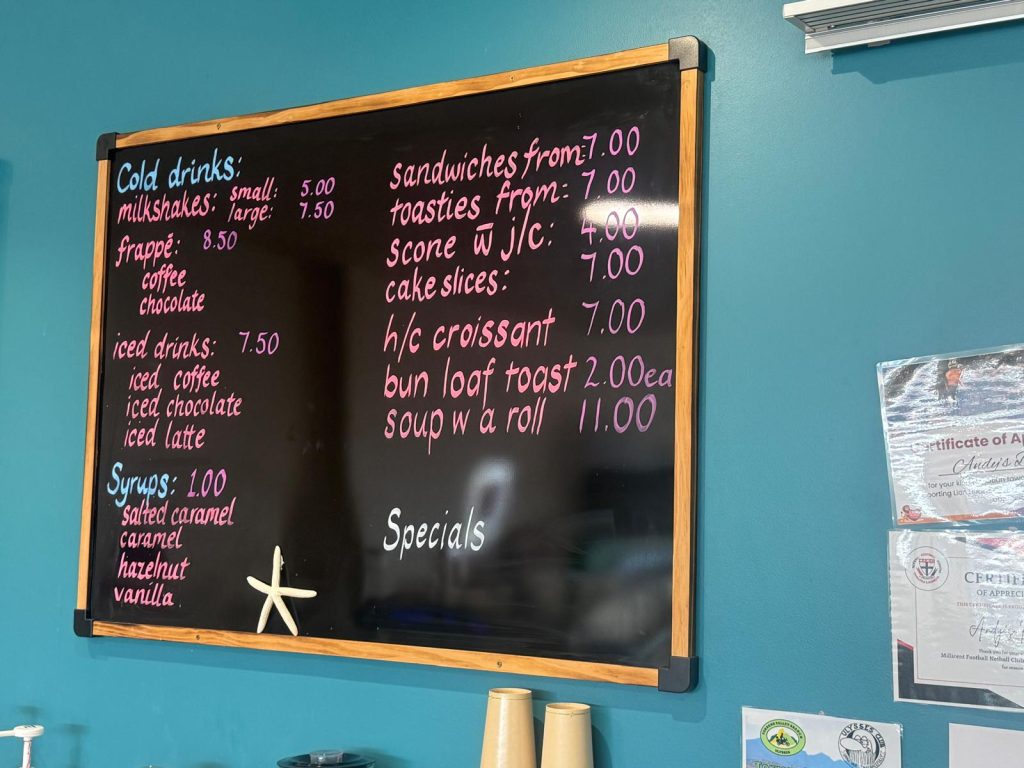 Cold drinks:
milkshakes: small: 5.00
large: 7.50
frappé: 8.50
coffee
chocolate
iced drinks: 7.50
iced coffee
iced chocolate
iced latte
Syrups: 1.00
salted caramel
caramel
hazelnut
vanilla
sandwiches from: 7.00
toasties from: 7.00
scone w̄ j/c: 4.00
cake slices: 7.00
h/c croissant 7.00
bun loaf toast 2.00ea
soup w a roll 11.00
Specials
Certificate of
Andy's
for your
CERTIF
OF APPREC
Andy's
Millicent Football Netball Club
ULYSSES CLUB